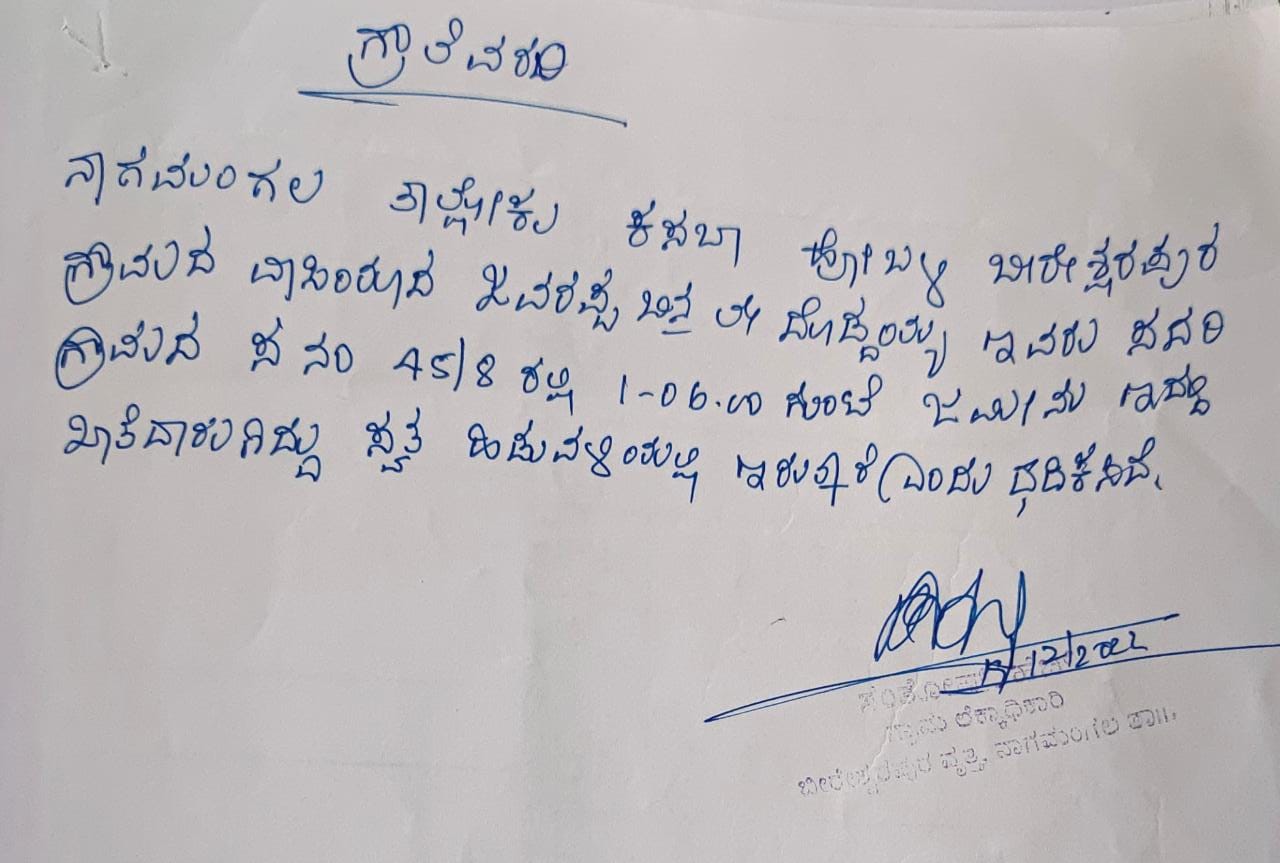 ಗ್ರಾ ಲೆ ವರದಿ
ನಾಗಮಂಗಲ ತಾಲ್ಲೋಕು ಕಸಬಾ ಹೋಬಳಿ ಬೀರೇಶ್ವರಪುರ
ಗ್ರಾಮದ ವಾಸಿಯಾದ ಜವರಪ್ಪ ಬಿನ್ ಲೇ ದೊಡ್ಡಯ್ಯ ಇವರು ಸದರಿ
ಗ್ರಾಮದ ಸ ನಂ 45/8 ರಲ್ಲಿ 1-06.00 ಗುಂಟೆ ಜಮೀನು ಇದ್ದು
ಖಾತೆದಾರರಾಗಿದ್ದು ಸ್ವತ್ತ ಹಿಡುವಳಿಯಲ್ಲಿ ಇರುತ್ತಾರೆ ಎಂದು ಧೃಡಿಕೆಸಿದೆ.
/12/2022
ಗ್ರಾಮ ಲೆಕ್ಕಾಧಿಕಾರಿ
ಬೀರೇಶ್ವರಪುರ ವೃತ್ತ, ನಾಗಮಂಗಲ ತಾ||.